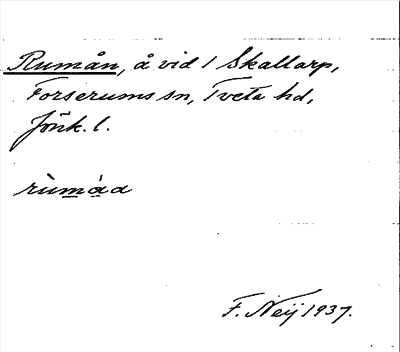 Rumån, å vid 1 Skallarp,
Forserums sn, Tveta hd,
Jönk. l.
rùmå̀a
F. Neij 1937.